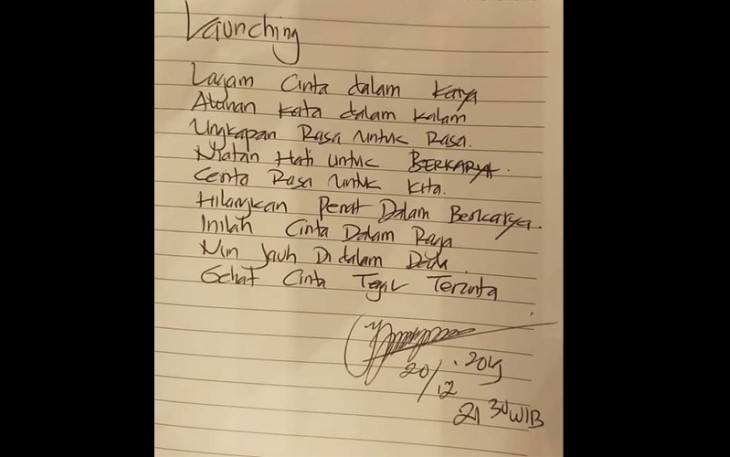 Launching
Lagam Cinta dalam Karya
Atunan Kata dalam Kalam
Ungkapan Rasa untuk Rasa.
Niatan Hati untuk BERKARYA.
Cerita Rasa untuk Kita.
Hilangkan Penat Dalam Berkarya.
Inilah Cinta Dalam Raga
Nun Jauh Di dalam Dada.
Cinta
20/12
21 30 WIB